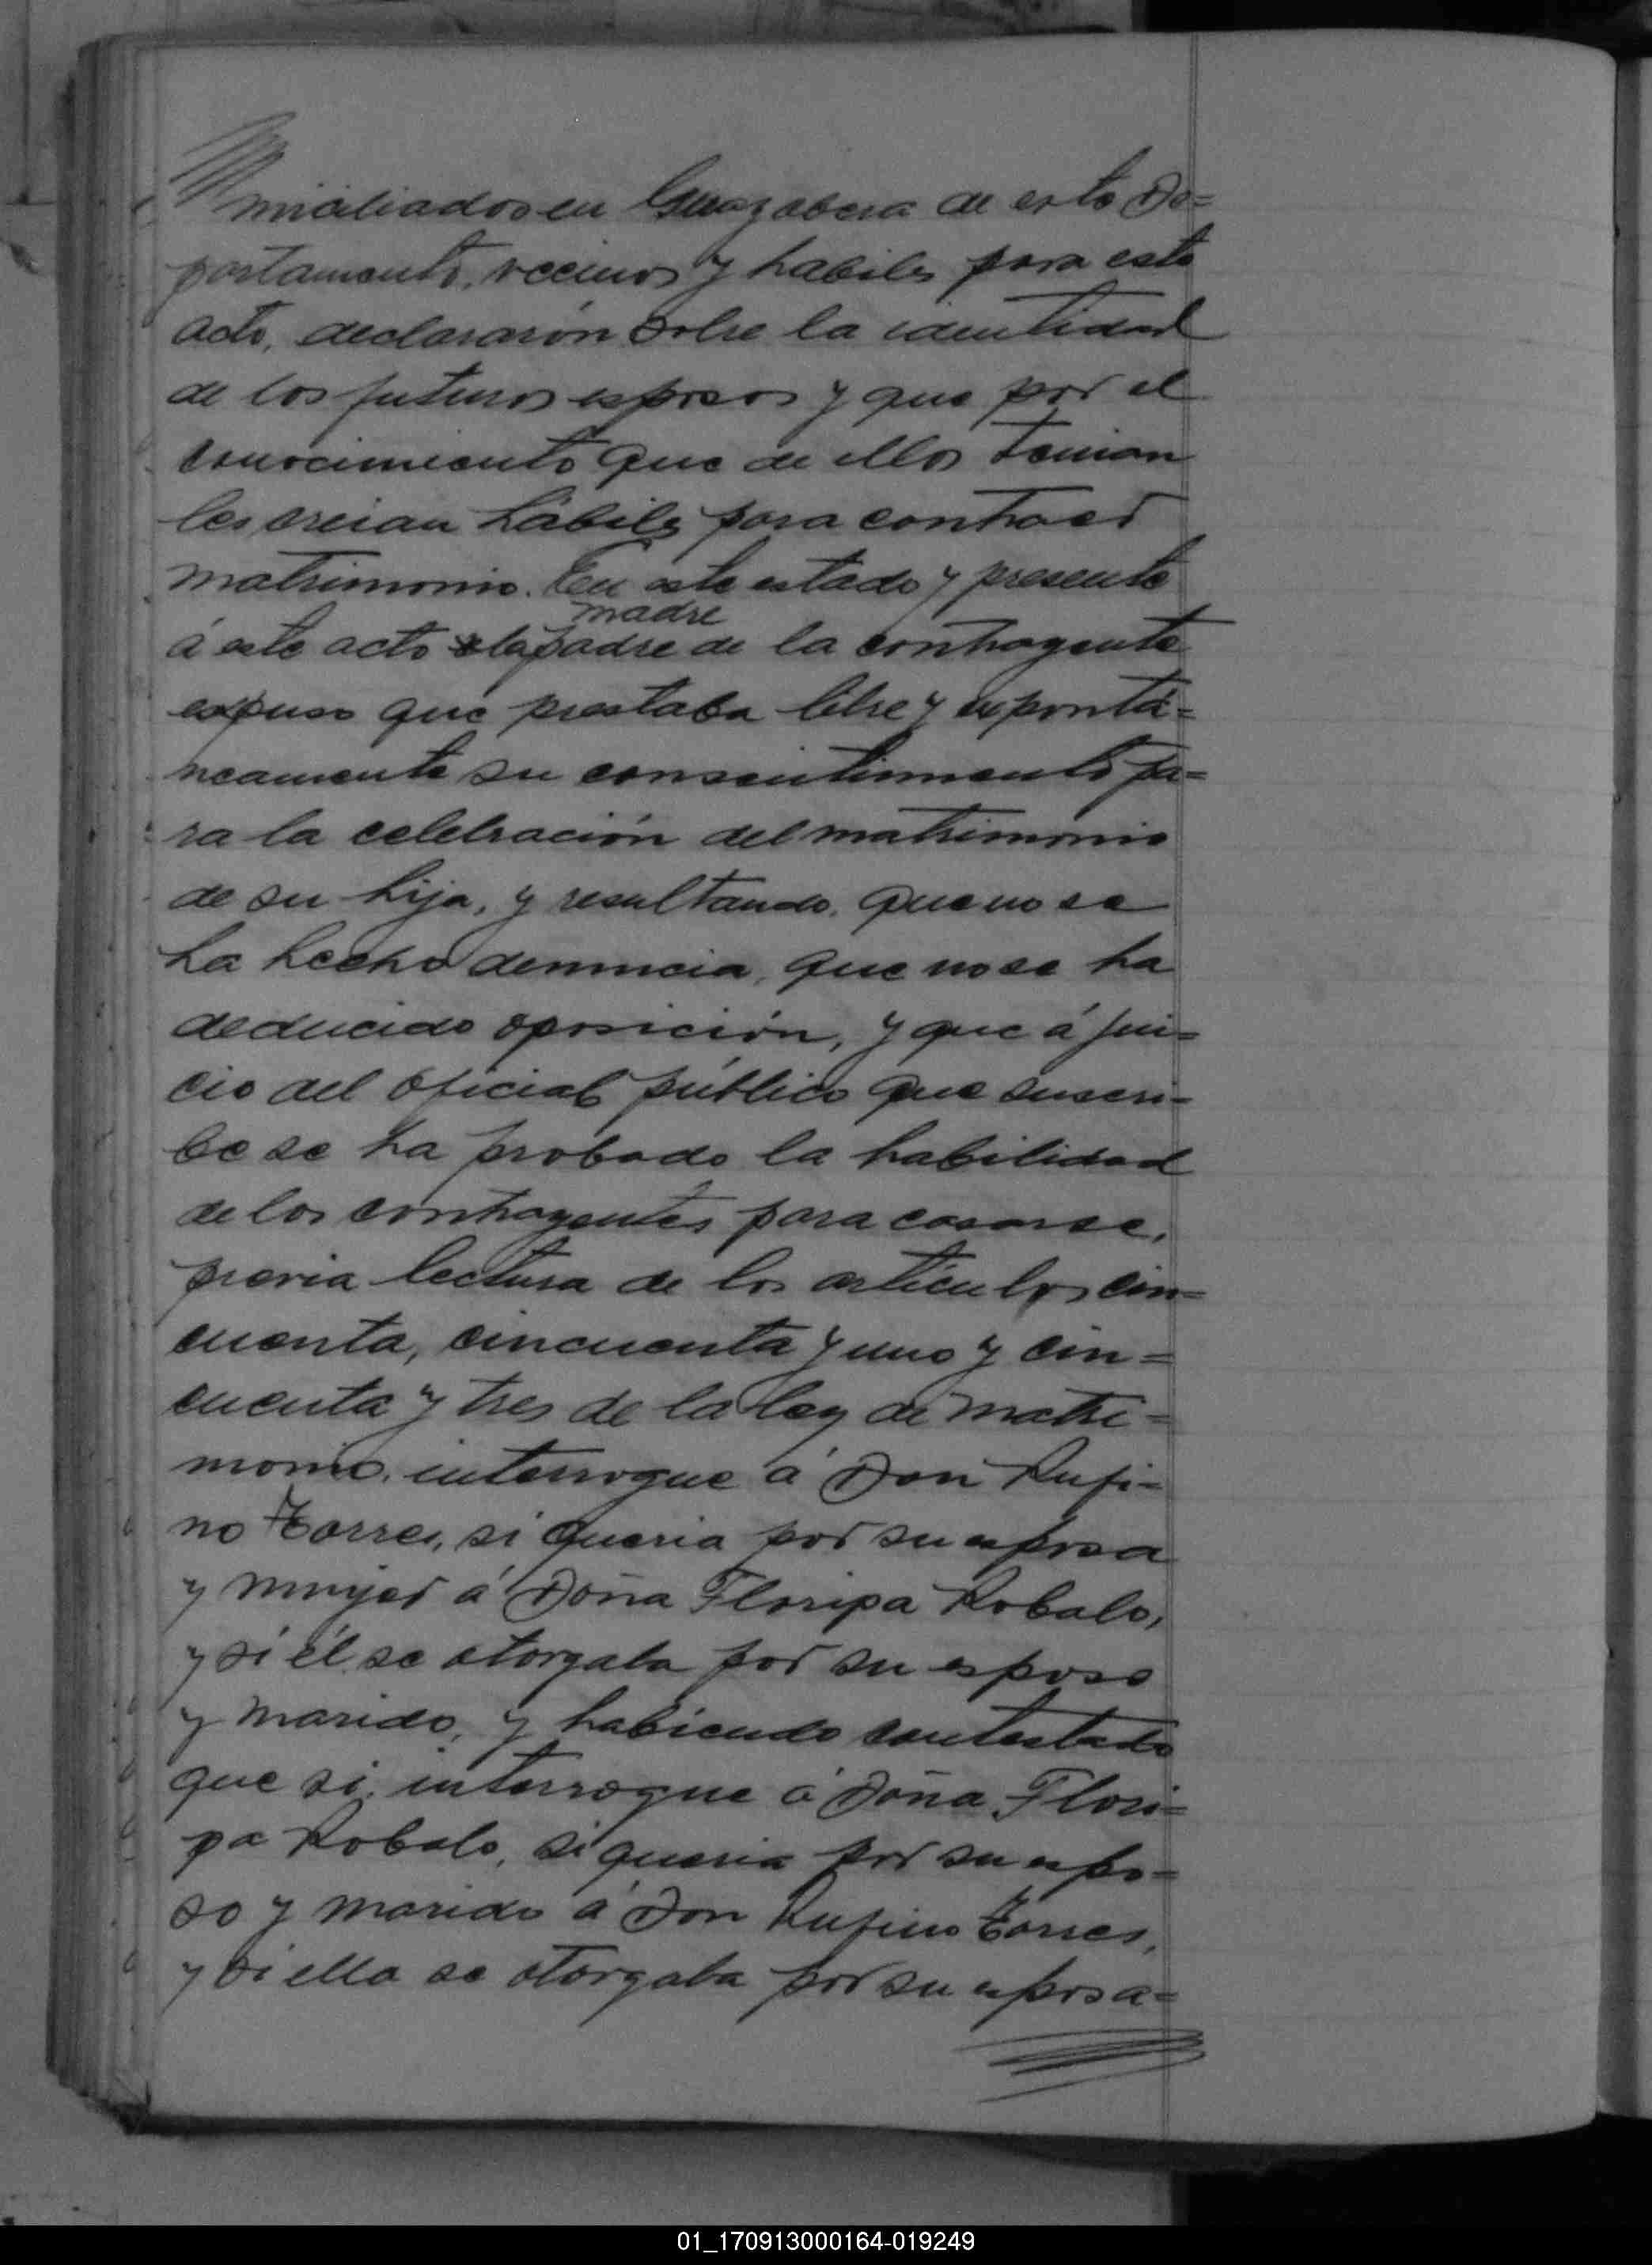 miciliados en Guazabera de este De=
partamento, vecinos y habiles para este
acto, declararón sobre la identidad
de los futuros esposos y que por el
conocimiento que de ellos tenian
les creian hábiles para contraer
matrimonio. En este estado y presente
madre
á este acto la padre de la contrayente
expuso que prestaba libre y espontá=
neamente su consentimiento pa=
ra la celebración del matrimonio
de su hija, y resultando, que no se
ha hecho denuncia, que no se ha
deducido oposición, y que á jui=
cio del oficial público que suscri=
be se ha probado la habilidad
de los contrayentes para casarse,
previa lectura de los articulos cin=
cuenta, cincuenta y uno y cin=
cuenta y tres de la ley de matri=
monio, interrogue á Don Rufi=
no Torres, si queria por su esposa
y mujer á Doña Floripa Robalo,
y si él se otorgaba por su esposo
y marido, y habiendo contestado
que si, interrogue á Doña Flori=
pa Robalo, si queria por su espo=
so y marido á Don Rufino Torres,
y si ella se otorgaba por su esposa=
01_170913000164-019249